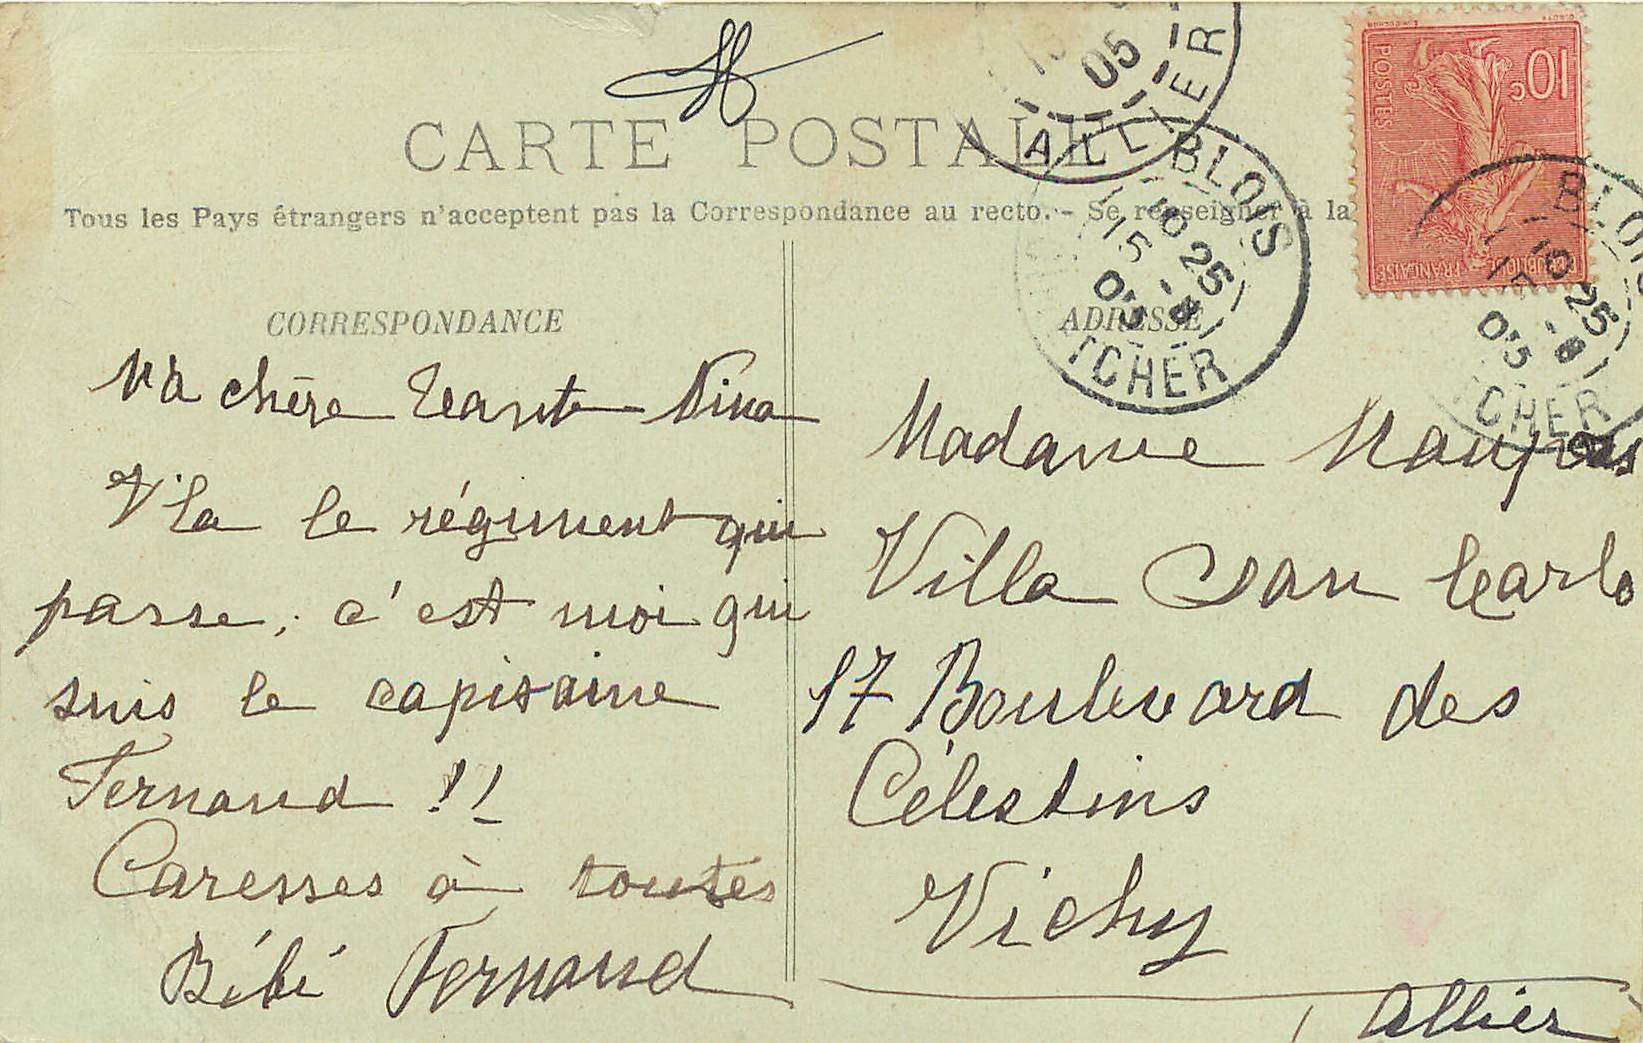 CARTE POSTALE
Tous les Pays étrangers n'acceptent pas la Correspondance au recto. - Se renseigner à la
CORRESPONDANCE
Ma chère Tante Nina
V'la le régiment qui
passe, c'est moi qui
suis le capitaine
Fernand !!
Caresses à toutes
Bébé Fernand
ADRESSE
Madame Maupas
Villa San Carlo
17 Boulevard des
Célestins
Vichy
Allier
10c
POSTES
FRANÇAISE
05
ALLIER
BLOIS
16 25
15 -8
05
CHER
BLOIS
16 25
-8
05
CHER